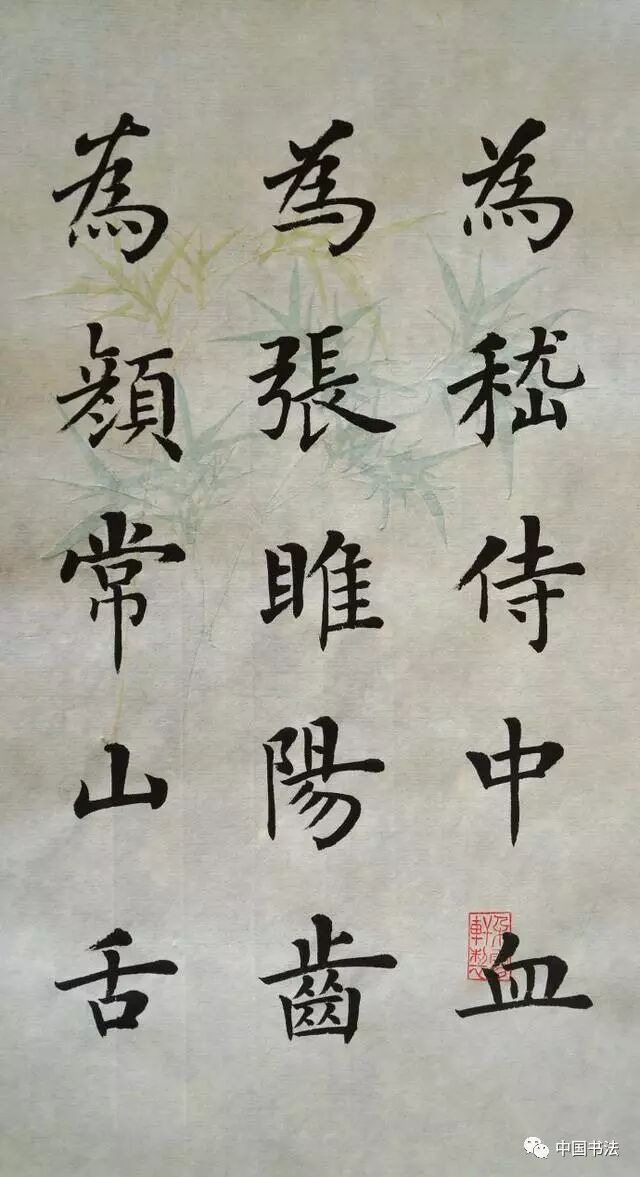 為嵇侍中血
為張睢陽齒
為顏常山舌
中国书法